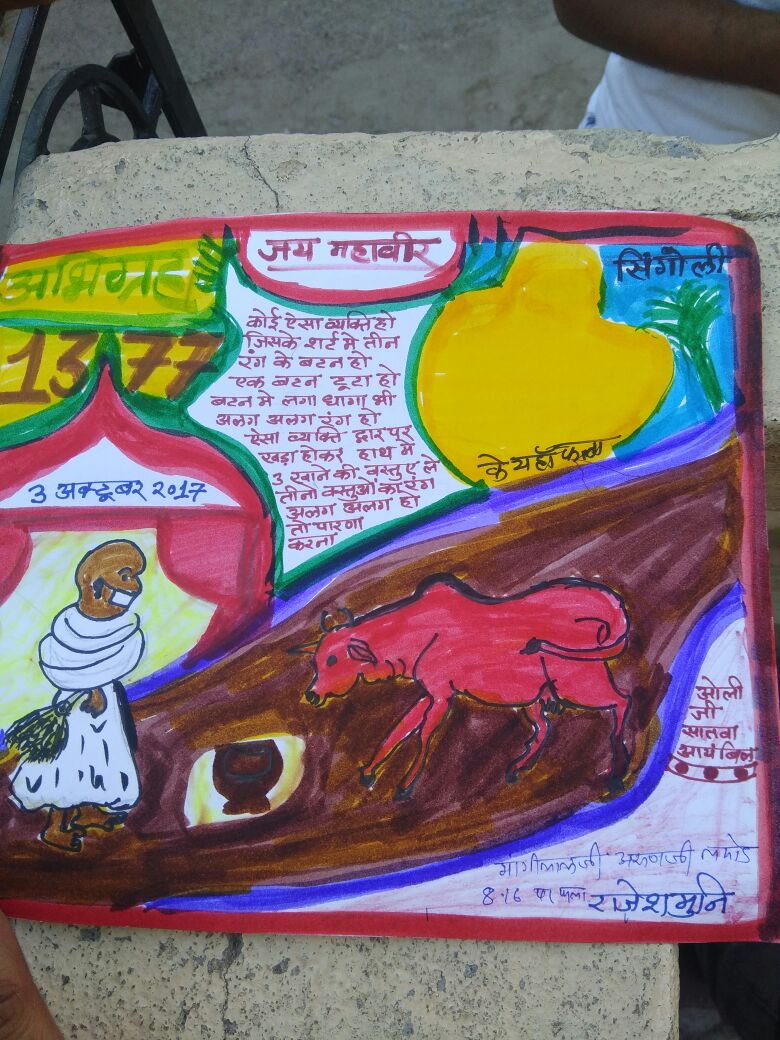 अभिग्रह
1377
जय महावीर
सिंगोली
कोई ऐसा व्यक्ति हो
जिसके शर्ट मे तीन
रंग के बटन हो
एक बटन टूटा हो
बटन मे लगा धागा भी
अलग अलग रंग हो
ऐसा व्यक्ति द्वार पर
खड़ा होकर हाथ मे
3 खाने की वस्तुए ले
तीनो वस्तुओं का रंग
अलग अलग हो
तो पारणा
करना
के यहाँ फला
3 अक्टूबर २०१७
ओली
जी
सातवा
आयंबिल
8.16 पर फला
राजेशमुनि